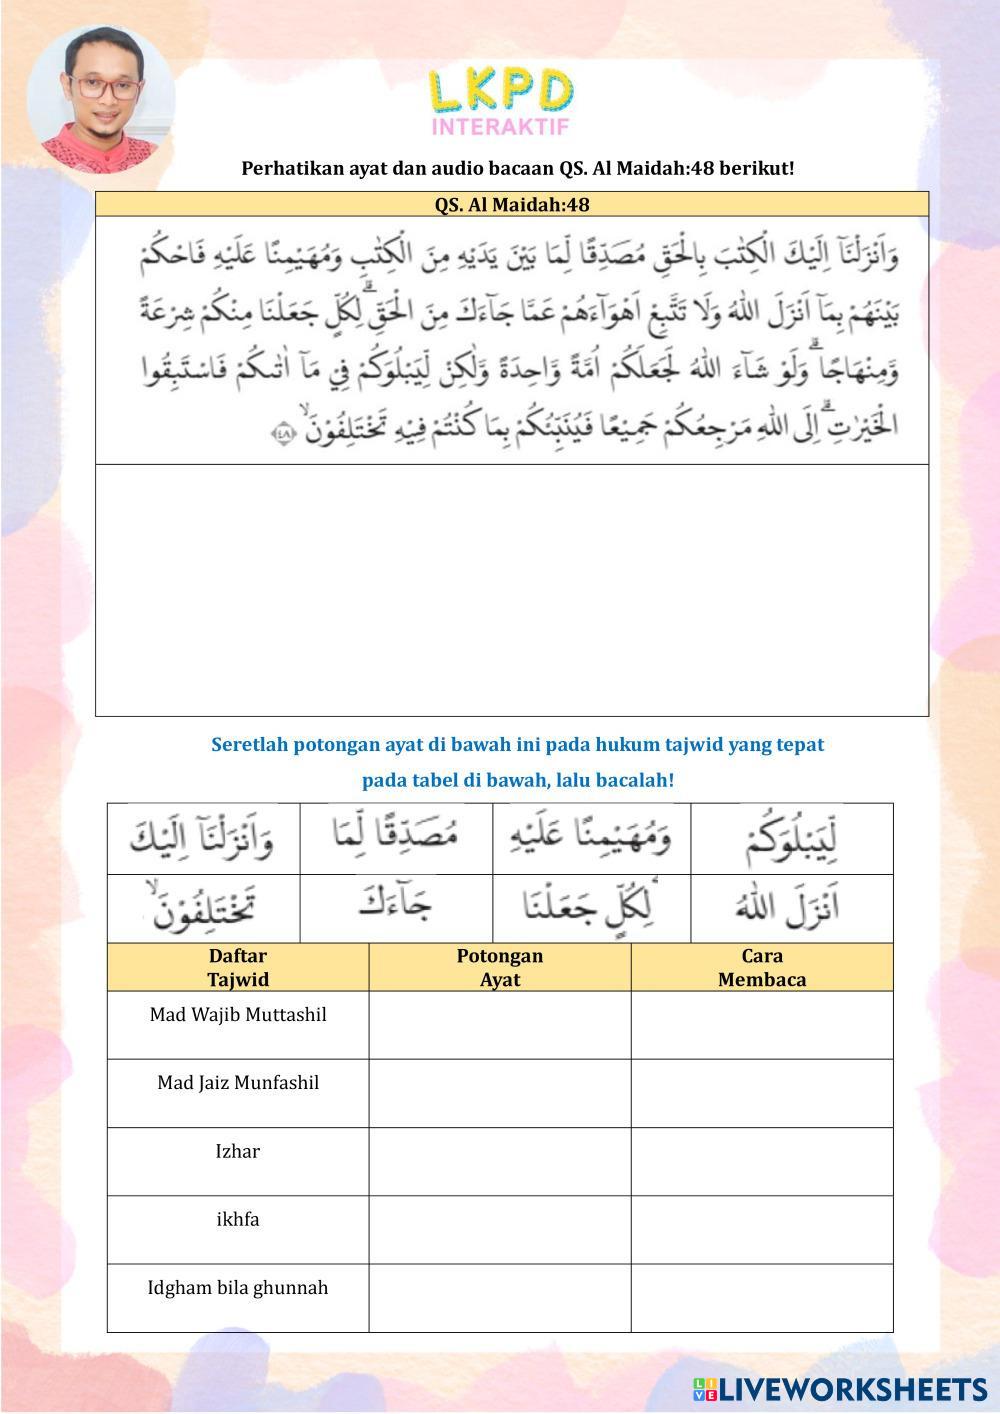 LKPD
INTERAKTIF
Perhatikan ayat dan audio bacaan QS. Al Maidah:48 berikut!
QS. Al Maidah:48
وَاَنْزَلْنَآ اِلَيْكَ الْكِتٰبَ بِالْحَقِّ مُصَدِّقًا لِّمَا بَيْنَ يَدَيْهِ مِنَ الْكِتٰبِ وَمُهَيْمِنًا عَلَيْهِ فَاحْكُمْ
بَيْنَهُمْ بِمَآ اَنْزَلَ اللّٰهُ وَلَا تَتَّبِعْ اَهْوَاۤءَهُمْ عَمَّا جَاۤءَكَ مِنَ الْحَقِّۗ لِكُلٍّ جَعَلْنَا مِنْكُمْ شِرْعَةً
وَّمِنْهَاجًاۗ وَلَوْ شَاۤءَ اللّٰهُ لَجَعَلَكُمْ اُمَّةً وَّاحِدَةً وَّلٰكِنْ لِّيَبْلُوَكُمْ فِيْ مَآ اٰتٰىكُمْ فَاسْتَبِقُوا
الْخَيْرٰتِۗ اِلَى اللّٰهِ مَرْجِعُكُمْ جَمِيْعًا فَيُنَبِّئُكُمْ بِمَا كُنْتُمْ فِيْهِ تَخْتَلِفُوْنَۙ ٤٨
Seretlah potongan ayat di bawah ini pada hukum tajwid yang tepat
pada tabel di bawah, lalu bacalah!
وَاَنْزَلْنَآ اِلَيْكَ مُصَدِّقًا لِّمَا وَمُهَيْمِنًا عَلَيْهِ لِّيَبْلُوَكُمْ
تَخْتَلِفُوْنَۙ جَاۤءَكَ لِكُلٍّ جَعَلْنَا اَنْزَلَ اللّٰهُ
Daftar Tajwid Potongan Ayat Cara Membaca
Mad Wajib Muttashil
Mad Jaiz Munfashil
Izhar
ikhfa
Idgham bila ghunnah
LIVE LIVEWORKSHEETS